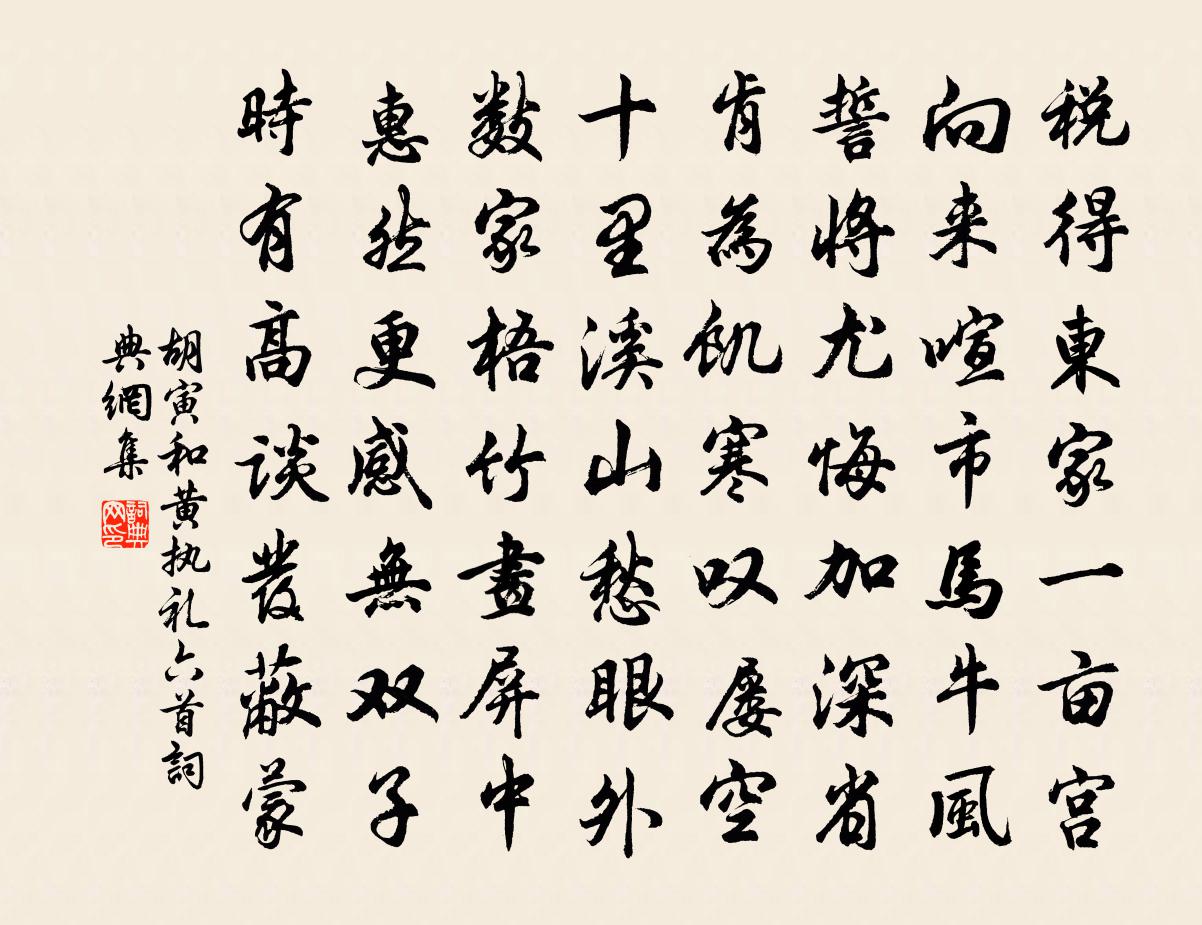 税得東家一亩宫
向来喧市馬牛風
誓将尤悔加深省
肯為飢寒叹屡空
十里溪山愁眼外
数家梧竹畫屏中
惠然更感無双子
時有高談發蔽蒙
胡寅和黄执礼六首詞
典網集
詞典
网印